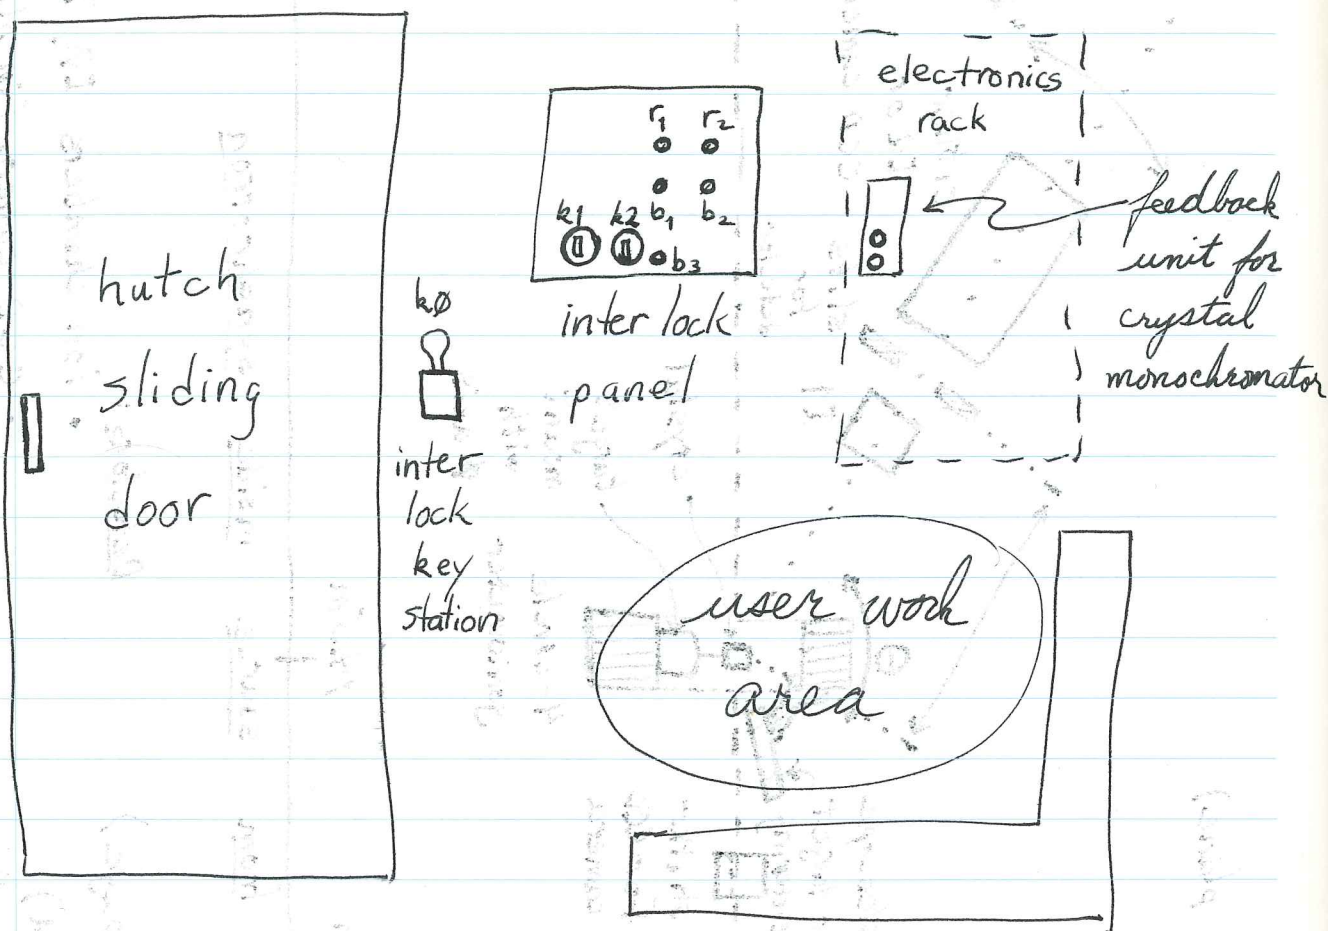 hutch
sliding
door
kø
inter
lock
key
station
r1 r2
k1 k2 b1 b2
b3
inter lock
panel
electronics
rack
feedback
unit for
crystal
monochromator
user work
area